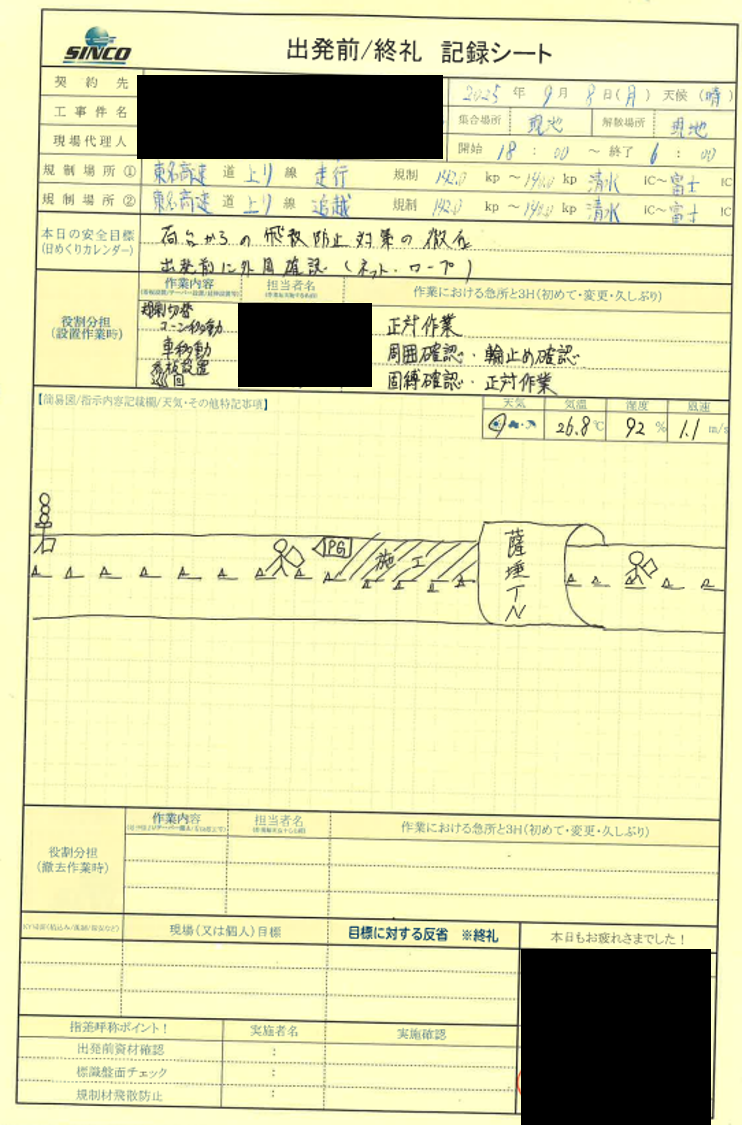 SINCO
出発前/終礼 記録シート
契約先
2025 年 9 月 8 日(月) 天候 (晴)
工事件名
集合場所 現地 解散場所 現地
現場代理人
開始 18 : 00 ～ 終了 6 : 00
規制場所① 東名高速 道 上り 線 走行 規制 142.0 kp ～ 140.0 kp 清水 IC～ 富士 IC
規制場所② 東名高速 道 上り 線 追越 規制 142.0 kp ～ 140.0 kp 清水 IC～ 富士 IC
本日の安全目標
(日めくりカレンダー)
荷台からの飛散防止対策の徹底
出発前に外周確認 (ネット・ロープ)
役割分担
(設置作業時)
作業内容 担当者名 作業における急所と3H(初めて・変更・久しぶり)
規制切替
コーン移動 正対作業
車移動 周囲確認・輪止め確認
看板設置 固縛確認・正対作業
巡回
【簡易図/指示内容記載欄/天気・その他特記事項】
天気 気温 湿度 風速
26.8 ℃ 92 % 1.1 m/s
PG
施工
薩埵TN
役割分担
(撤去作業時)
作業内容 担当者名 作業における急所と3H(初めて・変更・久しぶり)
現場(又は個人)目標 目標に対する反省 ※終礼 本日もお疲れさまでした！
指差呼称ポイント！ 実施者名 実施確認
出発前資材確認 :
標識盤面チェック :
規制材飛散防止 :